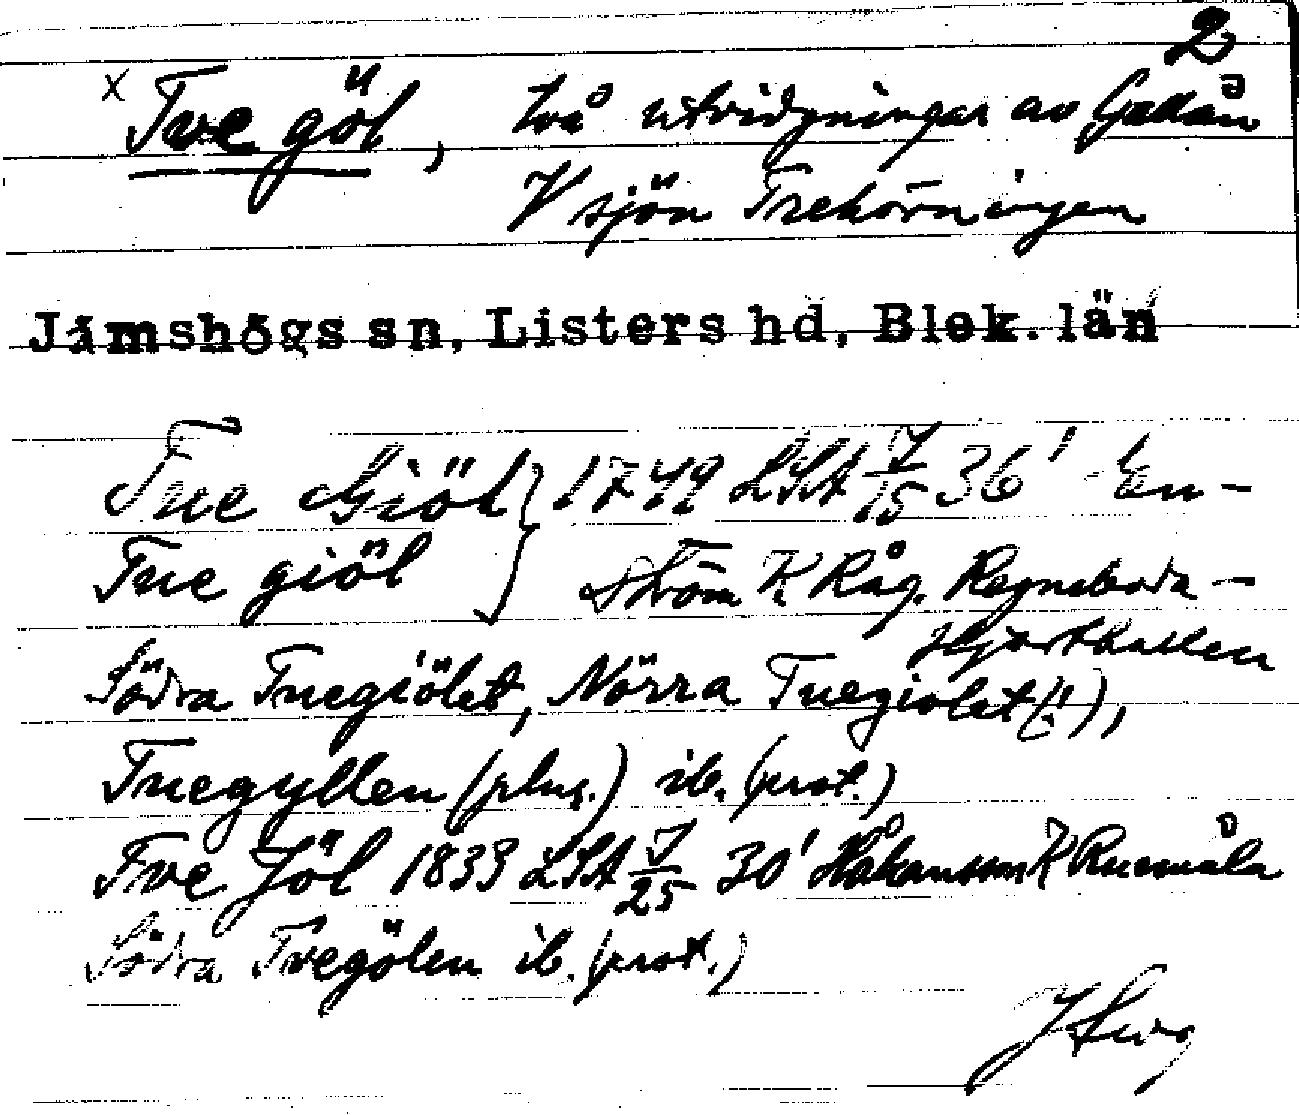 2
x Tvegöl, två utvidgningar av Gallån
V sjön Trehörningen
Jämshögs sn, Listers hd, Blek. län
Tue Giöl } 1749 LSA J/15 36' En-
Tue giöl } ström K Råg. Regneboda-
Hjorthallen
Södra Tuegiölet, Nörra Tuegiolet(!),
Tuegyllen (plur.) ib. (prot.)
Tve Jöl 1833 LSA J/25 30' Håkansson K Ruemåla
Södra Tvegölen ib. (prot.)